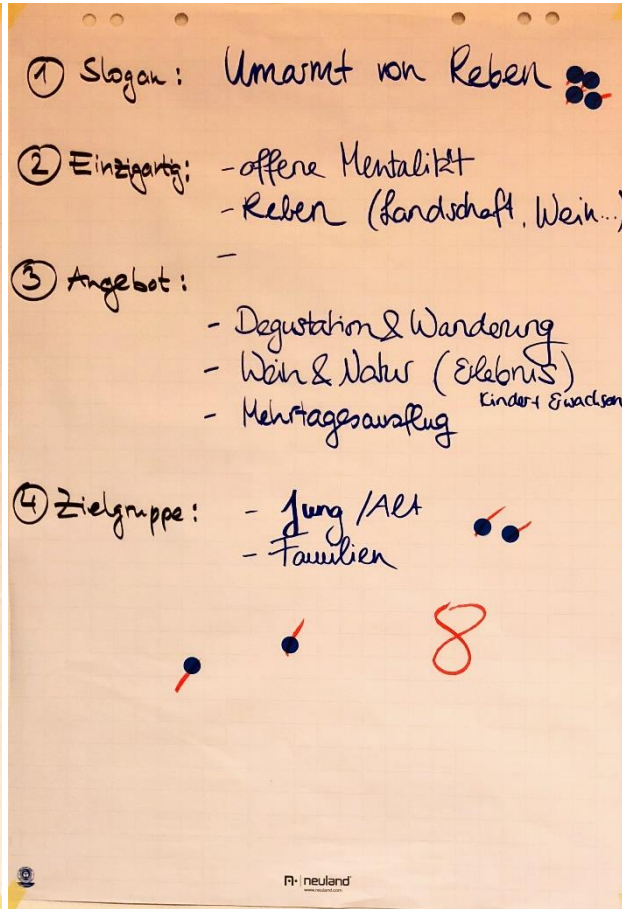 ① Slogan: Umarmt von Reben
② Einzigartig: - offene Mentalität
- Reben (Landschaft, Wein...)
-
③ Angebot:
- Degustation & Wanderung
- Wein & Natur (Erlebnis)
Kinder + Erwachsen
- Mehrtagesausflug
④ Zielgruppe: - Jung / Alt
- Familien
8
neuland
www.neuland.com